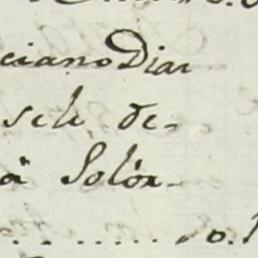 ciano Diar
sele de-
à Solòr-
. . . . . . . . . . 0.